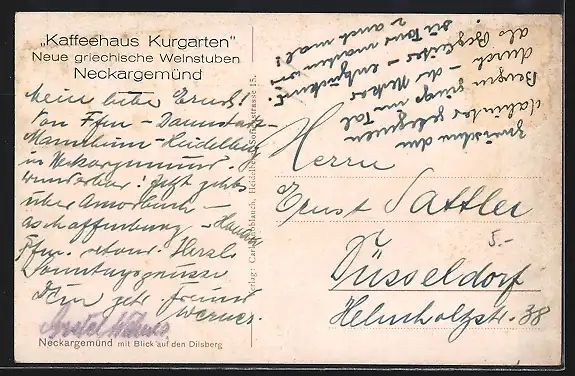 „Kaffeehaus Kurgarten"
Neue griechische Weinstuben
Neckargemünd
Mein lieber Ernst!
Von Ffm – Darmstadt –
Mannheim – Heidelberg
in Neckargemünd.
wunderbar! Jetzt gehts
über Amorbach –
Aschaffenburg – Hanau
Ffm. retour. Herzl.
Sonntagsgrüsse
Dein getr. Freund
Werner
Neckargemünd mit Blick auf den Dilsberg
Verlag: Carl Knoblauch, Heidelberg, Sofienstrasse 15.
zwischen den
dahinter gelegenen
Bergen ging im Tal
durch – der Neckar
als Begleiter – entzückend.
die Tour machen wir
2 auch mal!
Herrn
Ernst Sattler
5.-
Düsseldorf
Helmholtzstr. 38